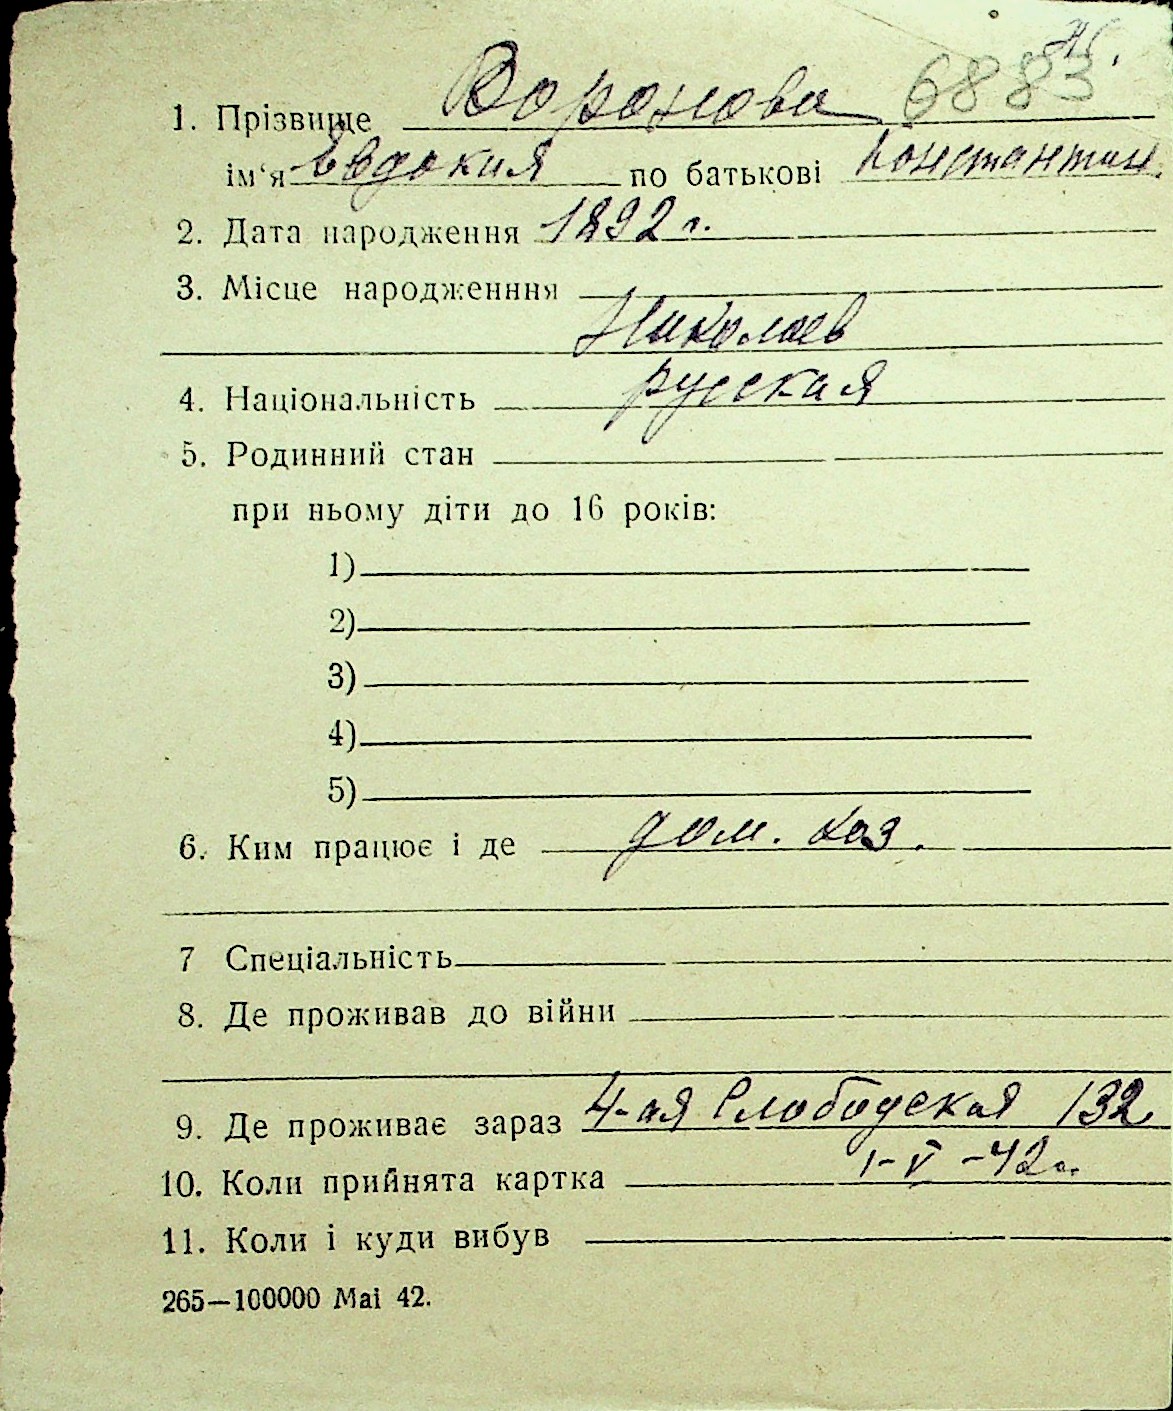 1. Прізвище Воронова 6883
ім‘я Евдокия по батькові Константин.
2. Дата народження 1892 г.
3. Місце народженння
Николаев
4. Національність русская
5. Родинний стан
при ньому діти до 16 років:
1)
2)
3)
4)
5)
6. Ким працює і де дом. хоз.
7 Спеціальність
8. Де проживав до війни
9. Де проживає зараз 4-ая Слободская 132
10. Коли прийнята картка 1-V-42 г.
11. Коли і куди вибув
265—100000 Маі 42.